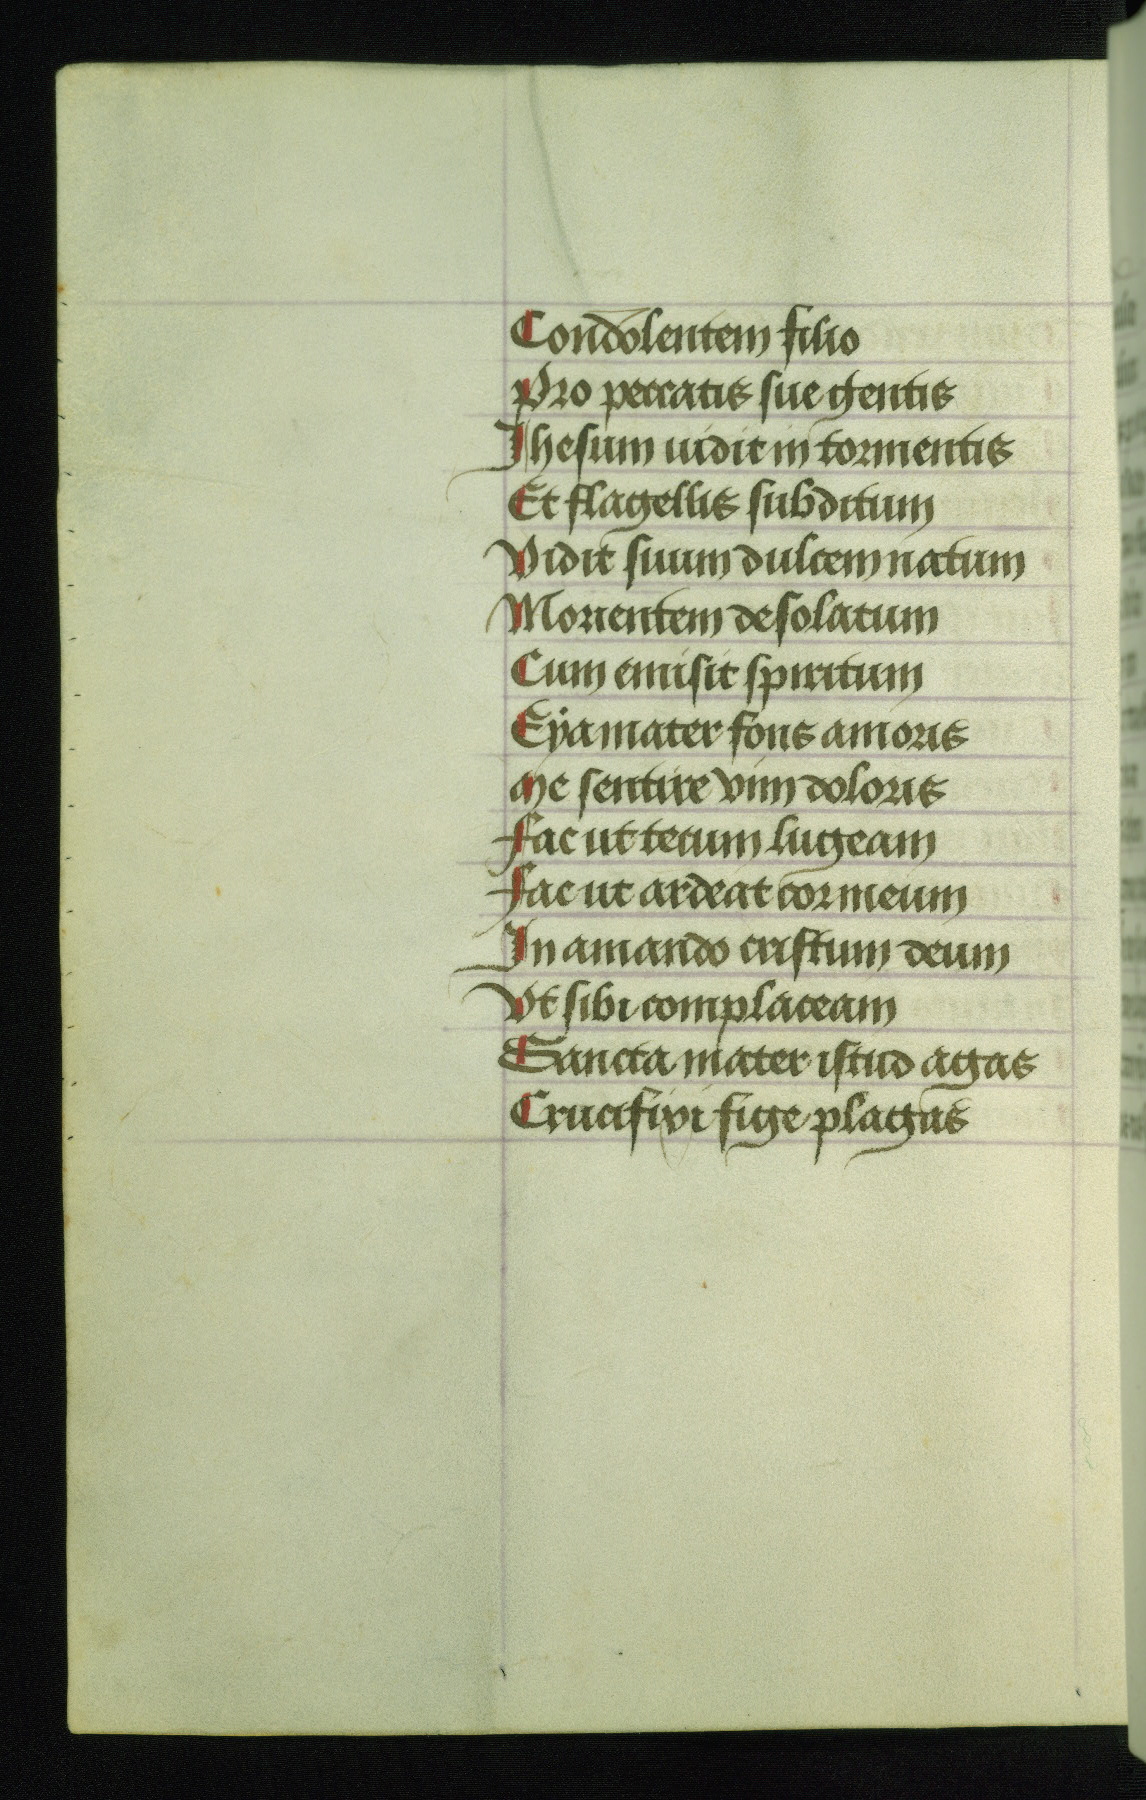 Condolentem filio
Pro peccatis sue gentis
Jhesum uidit in tormentis
Et flagellis subditum
Vidit suum dulcem natum
Morientem desolatum
Cum emisit spiritum
Eÿa mater fons amoris
Me sentire vim doloris
Fac ut tecum lugeam
Fac ut ardeat cor meum
In amando cristum deum
Vt sibi complaceam
Sancta mater istud agas
Crucifixi fige plagas